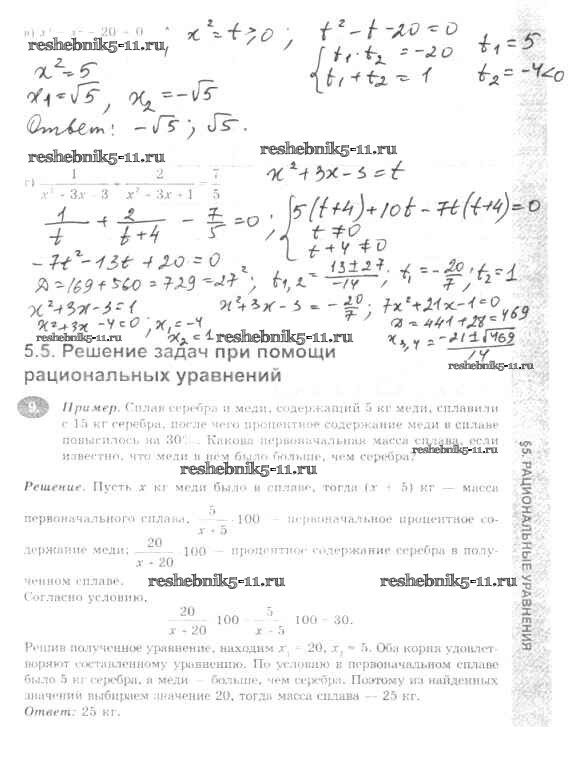 в) x⁴ − x² − 20 = 0, x² = t ≥ 0; t² − t − 20 = 0
reshebnik5-11.ru
{ t₁ · t₂ = −20 t₁ = 5
x² = 5 t₁ + t₂ = 1 t₂ = −4 < 0
x₁ = √5, x₂ = −√5
Ответ: −√5; √5.
reshebnik5-11.ru reshebnik5-11.ru
г) 1/(x² + 3x − 3) + 2/(x² + 3x + 1) = 7/5 x² + 3x − 3 = t
1/t + 2/(t+4) − 7/5 = 0; { 5(t+4) + 10t − 7t(t+4) = 0
t ≠ 0
t + 4 ≠ 0
−7t² − 13t + 20 = 0
D = 169 + 560 = 729 = 27²; t₁,₂ = (13 ± 27)/−14; t₁ = −20/7; t₂ = 1
x² + 3x − 3 = 1 x² + 3x − 3 = −20/7; 7x² + 21x − 1 = 0
x² + 3x − 4 = 0; x₁ = −4 D = 441 + 28 = 469
reshebnik5-11.ru x₂ = 1 reshebnik5-11.ru x₃,₄ = (−21 ± √469)/14
reshebnik5-11.ru
5.5. Решение задач при помощи
рациональных уравнений
9. Пример. Сплав серебра и меди, содержащий 5 кг меди, сплавили
с 15 кг серебра, после чего процентное содержание меди в сплаве
повысилось на 30%. Какова первоначальная масса сплава, если
известно, что меди в нём было больше, чем серебра?
reshebnik5-11.ru reshebnik5-11.ru
Решение. Пусть x кг меди было в сплаве, тогда (x + 5) кг — масса
первоначального сплава, 5/(x + 5) · 100 — первоначальное процентное со-
держание меди; 20/(x + 20) · 100 — процентное содержание серебра в полу-
ченном сплаве.
reshebnik5-11.ru reshebnik5-11.ru
Согласно условию,
20/(x + 20) · 100 − 5/(x + 5) · 100 = 30.
Решив полученное уравнение, находим x₁ = 20, x₂ = 5. Оба корня удовлет-
воряют составленному уравнению. По условию в первоначальном сплаве
было 5 кг серебра, а меди — больше, чем серебра. Поэтому из найденных
значений выбираем значение 20, тогда масса сплава — 25 кг.
Ответ: 25 кг.
§5. РАЦИОНАЛЬНЫЕ УРАВНЕНИЯ